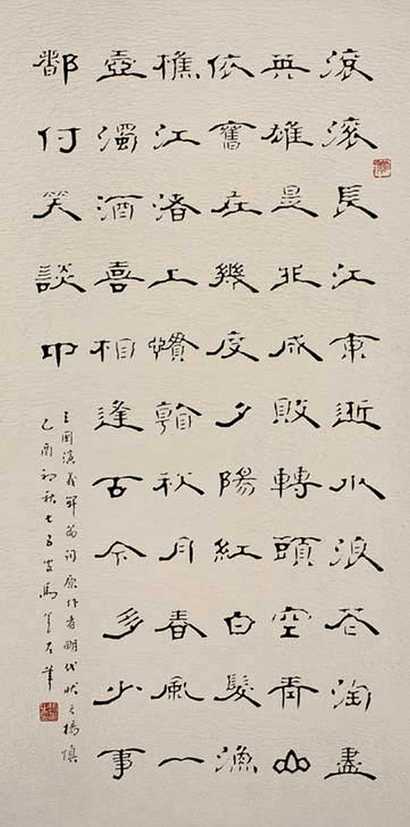 滾滾長江東逝水浪花淘盡
英雄是非成敗轉頭空青山
依舊在幾度夕陽紅白髮漁
樵江渚上慣看秋月春風一
壺濁酒喜相逢古今多少事
都付笑談中
三國演義開篇詞原作者明代狀元楊慎
乙酉初秋七馬左筆